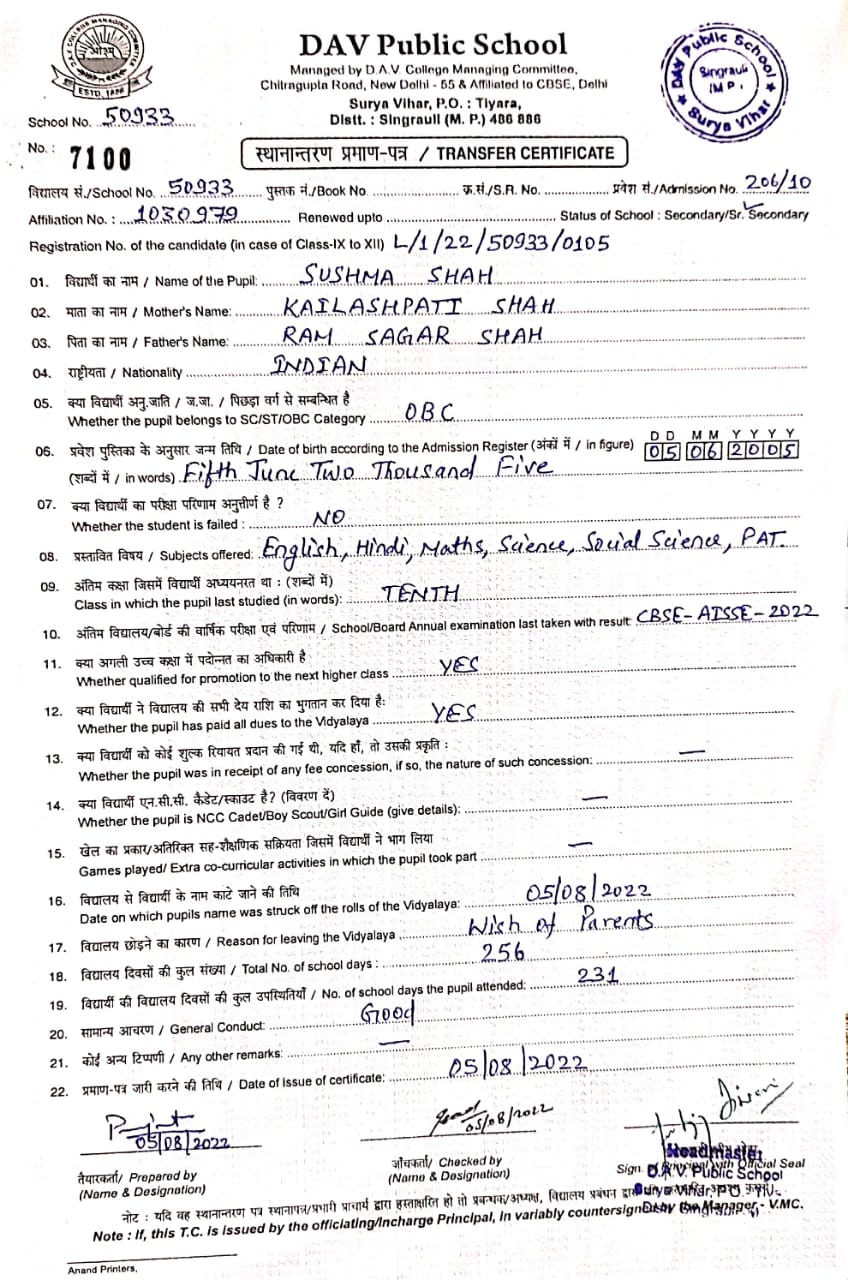 DAV COLLEGE MANAGING COMMITTEE
ओ३म्
ESTD. 1886
DAV Public School
Managed by D.A.V. College Managing Committee,
Chitragupta Road, New Delhi - 55 & Affiliated to CBSE, Delhi
Surya Vihar, P.O. : Tiyara,
Distt. : Singrauli (M. P.) 486 886
DAV Public School
Singrauli
(M.P.)
Surya Vihar
School No. 50933
No. : 7100
स्थानान्तरण प्रमाण-पत्र / TRANSFER CERTIFICATE
विद्यालय सं./School No. 50933 पुस्तक नं./Book No. क्र.सं./S.R. No. प्रवेश सं./Admission No. 206/10
Affiliation No. : 1030979 Renewed upto Status of School : Secondary/Sr. Secondary
Registration No. of the candidate (in case of Class-IX to XII) L/1/22/50933/0105
01. विद्यार्थी का नाम / Name of the Pupil: SUSHMA SHAH
02. माता का नाम / Mother's Name: KAILASHPATI SHAH
03. पिता का नाम / Father's Name: RAM SAGAR SHAH
04. राष्ट्रीयता / Nationality INDIAN
05. क्या विद्यार्थी अनु.जाति / ज.जा. / पिछड़ा वर्ग से सम्बन्धित है
Whether the pupil belongs to SC/ST/OBC Category OBC
D D M M Y Y Y Y
06. प्रवेश पुस्तिका के अनुसार जन्म तिथि / Date of birth according to the Admission Register (अंकों में / in figure) 05 06 2005
(शब्दों में / in words) Fifth June Two Thousand Five
07. क्या विद्यार्थी का परीक्षा परिणाम अनुत्तीर्ण है ?
Whether the student is failed : NO
08. प्रस्तावित विषय / Subjects offered: English, Hindi, Maths, Science, Social Science, PAT.
09. अंतिम कक्षा जिसमें विद्यार्थी अध्ययनरत था : (शब्दों में)
Class in which the pupil last studied (in words): TENTH
10. अंतिम विद्यालय/बोर्ड की वार्षिक परीक्षा एवं परिणाम / School/Board Annual examination last taken with result: CBSE-AISSE-2022
11. क्या अगली उच्च कक्षा में पदोन्नत का अधिकारी है
Whether qualified for promotion to the next higher class YES
12. क्या विद्यार्थी ने विद्यालय की सभी देय राशि का भुगतान कर दिया है:
Whether the pupil has paid all dues to the Vidyalaya YES
13. क्या विद्यार्थी को कोई शुल्क रियायत प्रदान की गई थी, यदि हाँ, तो उसकी प्रकृति :
Whether the pupil was in receipt of any fee concession, if so, the nature of such concession: —
14. क्या विद्यार्थी एन.सी.सी. कैडेट/स्काउट है? (विवरण दें)
Whether the pupil is NCC Cadet/Boy Scout/Girl Guide (give details): —
15. खेल का प्रकार/अतिरिक्त सह-शैक्षणिक सक्रियता जिसमें विद्यार्थी ने भाग लिया
Games played/ Extra co-curricular activities in which the pupil took part —
16. विद्यालय से विद्यार्थी के नाम काटे जाने की तिथि
Date on which pupils name was struck off the rolls of the Vidyalaya: 05/08/2022
17. विद्यालय छोड़ने का कारण / Reason for leaving the Vidyalaya Wish of Parents
18. विद्यालय दिवसों की कुल संख्या / Total No. of school days : 256
19. विद्यार्थी की विद्यालय दिवसों की कुल उपस्थितियाँ / No. of school days the pupil attended: 231
20. सामान्य आचरण / General Conduct: Good
21. कोई अन्य टिप्पणी / Any other remarks: —
22. प्रमाण-पत्र जारी करने की तिथि / Date of issue of certificate: 05/08/2022
05/08/2022
05/08/2022
तैयारकर्ता/ Prepared by
(Name & Designation)
जाँचकर्ता/ Checked by
(Name & Designation)
Headmaster
Sign. of Principal with Official Seal
D.A.V. Public School
Surya Vihar, P.O.
नोट : यदि वह स्थानान्तरण पत्र स्थानापन्न/प्रभारी प्राचार्य द्वारा हस्ताक्षरित हो तो प्रबन्धक/अध्यक्ष, विद्यालय प्रबंधन द्वारा
Note : If, this T.C. is issued by the officiating/Incharge Principal, in variably countersigned by the Manager - V.MC.
Anand Printers,